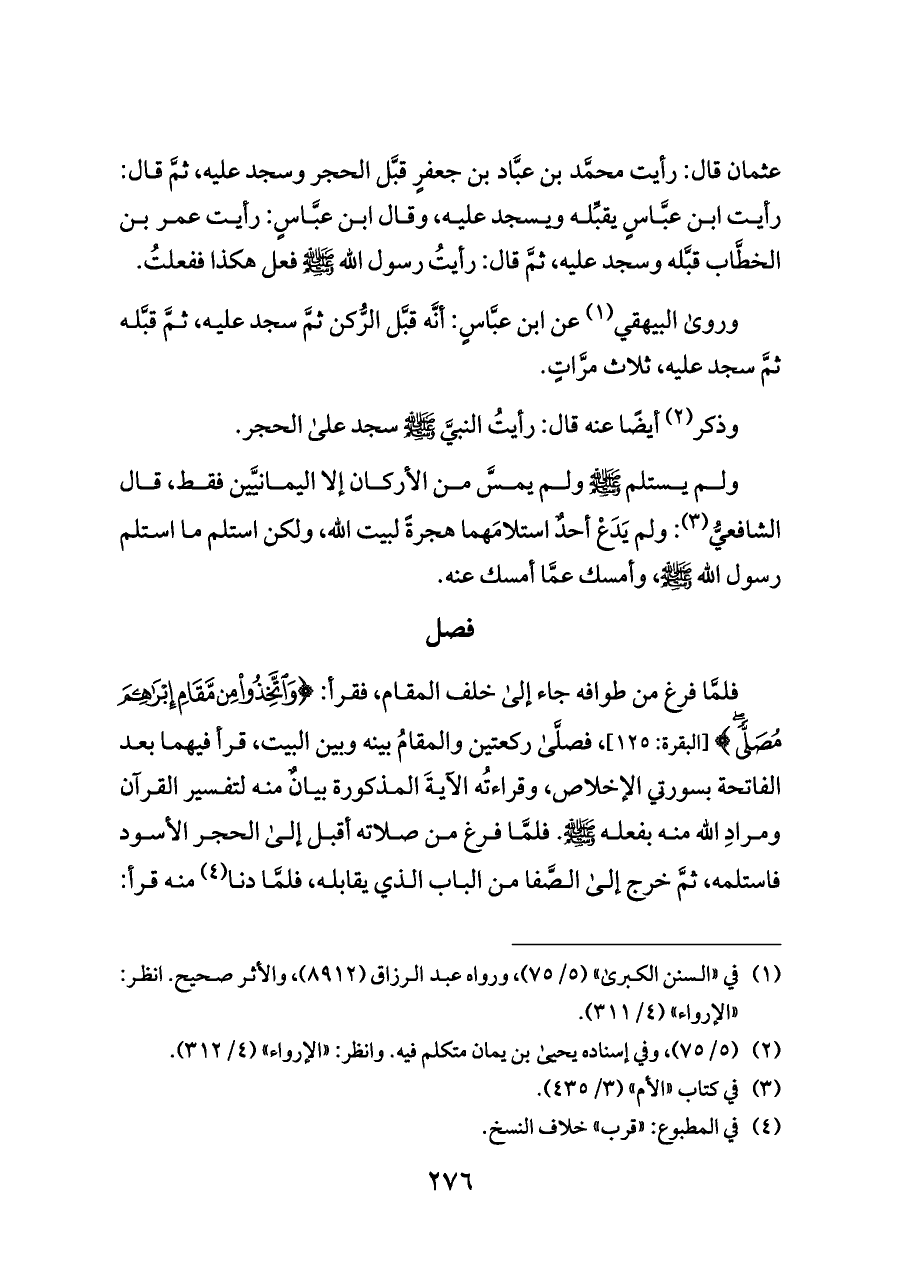 عثمان قال: رأيت محمَّد بن عبَّاد بن جعفرٍ قبَّل الحجر وسجد عليه، ثمَّ قال:
رأيت ابن عبَّاسٍ يقبِّله ويسجد عليه، وقال ابن عبَّاسٍ: رأيت عمر بن
الخطَّاب قبَّله وسجد عليه، ثمَّ قال: رأيتُ رسول الله ﷺ فعل هكذا ففعلتُ.
وروىٰ البيهقي(١) عن ابن عبَّاسٍ: أنَّه قبَّل الرُّكن ثمَّ سجد عليه، ثمَّ قبَّله
ثمَّ سجد عليه، ثلاث مرَّاتٍ.
وذكر(٢) أيضًا عنه قال: رأيتُ النبيَّ ﷺ سجد علىٰ الحجر.
ولم يستلم ﷺ ولم يمسَّ من الأركان إلا اليمانيَّين فقط، قال
الشافعيُّ(٣): ولم يَدَعْ أحدٌ استلامَهما هجرةً لبيت الله، ولكن استلم ما استلم
رسول الله ﷺ، وأمسك عمَّا أمسك عنه.
فصل
فلمَّا فرغ من طوافه جاء إلىٰ خلف المقام، فقرأ: ﴿وَٱتَّخِذُواْ مِن مَّقَامِ إِبۡرَٰهِـۧمَ
مُصَلّٗىۖ﴾ [البقرة: ١٢٥]، فصلَّىٰ ركعتين والمقامُ بينه وبين البيت، قرأ فيهما بعد
الفاتحة بسورتي الإخلاص، وقراءتُه الآيةَ المذكورة بيانٌ منه لتفسير القرآن
ومرادِ الله منه بفعله ﷺ. فلمَّا فرغ من صلاته أقبل إلىٰ الحجر الأسود
فاستلمه، ثمَّ خرج إلىٰ الصَّفا من الباب الذي يقابله، فلمَّا دنا(٤) منه قرأ:
(١) في «السنن الكبرىٰ» (٥/ ٧٥)، ورواه عبد الرزاق (٨٩١٢)، والأثر صحيح. انظر:
«الإرواء» (٤/ ٣١١).
(٢) (٥/ ٧٥)، وفي إسناده يحيىٰ بن يمان متكلم فيه. وانظر: «الإرواء» (٤/ ٣١٢).
(٣) في كتاب «الأم» (٣/ ٤٣٥).
(٤) في المطبوع: «قرب» خلاف النسخ.
٢٧٦